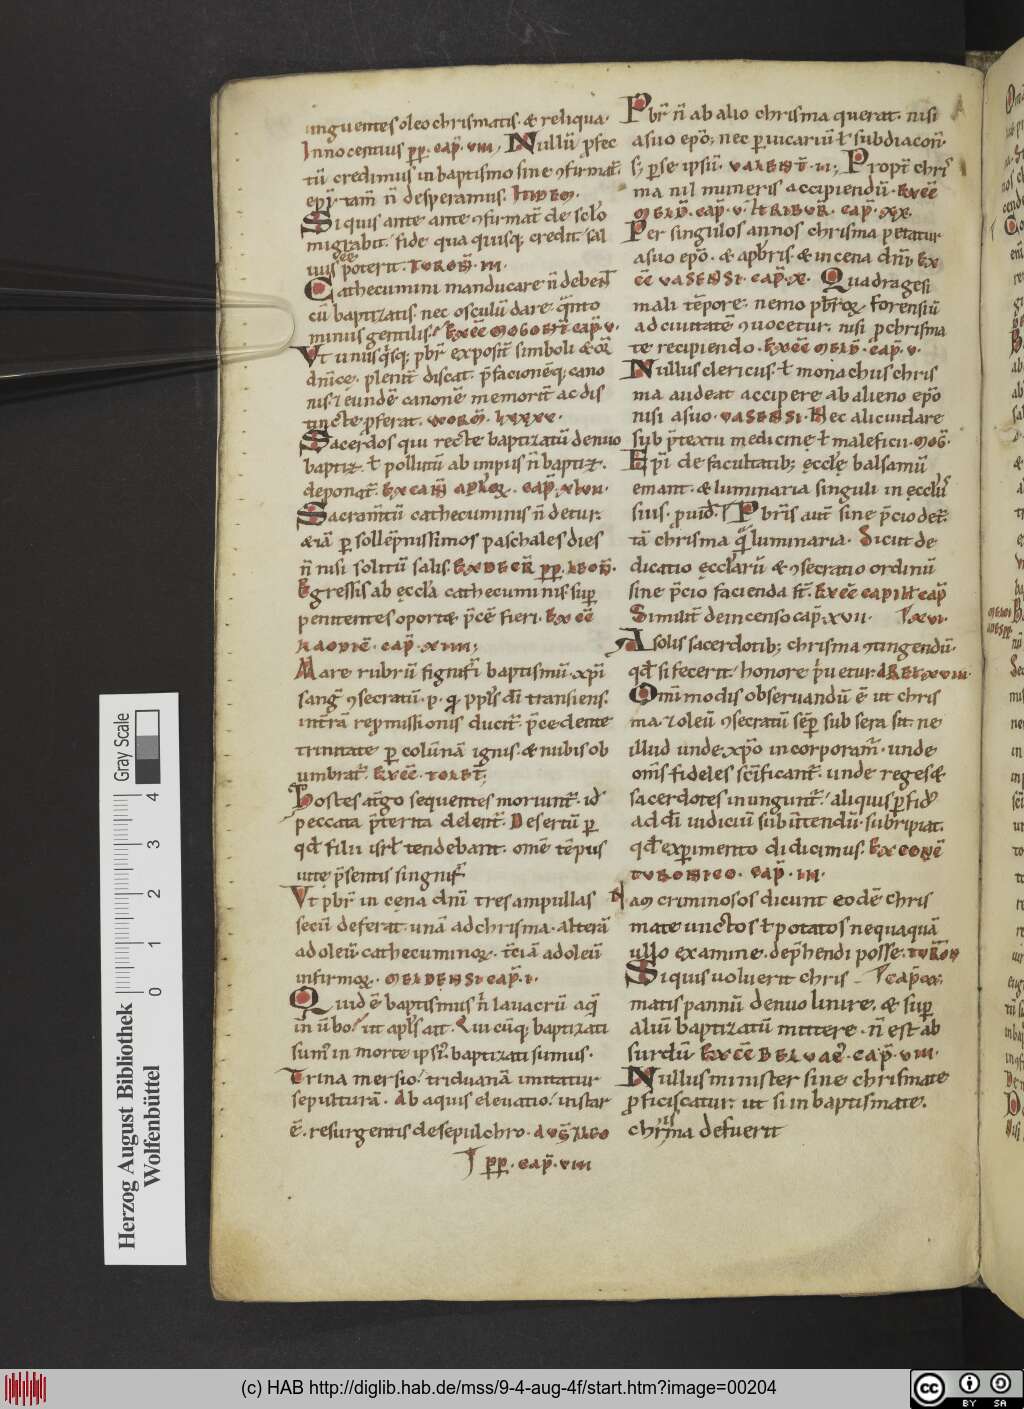 unguentes oleo chrismatis. & reliqua.
Innocentius pp. cap̄. viii. Nullū p̱fec
tū credimus in baptismo sine ꝯfirmat̄.
ep̄i. tam̄ n̄ desperamus. Ite͂m.
Siquis ante ante ꝯfirmat̄ de sc̄lo
migrabit. fide qua quisq; credit. sal
uus poterit. Toron̄. iii.
ee͂
Cathecumini manducare n̄ debent
cū baptizatis. nec osculū dare. q̄nto
minus gentilis. Ex ec̄c Mogont̄ cap̄. v.
Vt unusq̇sq; pbr̄ exposit̄ simboli & or̄
dn̄icę. pleniť discat. p̄facionēq; cano
nis. & eundē canonē memorit̄ ac dis
tincte p̱ferat. Worm̄. lxxxv.
Sacerdos qui recte baptizatū denuo
baptiz. ł pollutū ab impiis n̄ baptiz.
deponat̄. Ex can̄ aplꝝ. cap̄. xlvii.
Sacram̄tū cathecuminis n̄ detur.
& iā p̱ sollēpnissimos paschales dies
n̄ nisi solitū salis. Ex decr̄ pp. Leon̄.
Egressis ab ęccl̄a cathecuminis. sup̱
penitentes oportꝫ p̄cē fieri. Ex ec̄c
Laodic̄. cap̄. xviiii;
Mare rubrū signific̄ baptismū. xp̄i
sanḡ ꝯsecratū. p. qꝫ ppl̄s dī transiens.
int̄rā repmissionis ducit̄. p̄cedente
trinitate p̱ colūnā ignis. & nubis ob
umbrat̄. Ex ec̄c. Tolet̄;
Hostes at̄go sequentes moriunt̄. id̄
peccata p̄terita delent̄. Desertū p̱
qd̄ filii isrł tendebant. omē tēpus
uitę p̄sentis signif̄.
Vt pbr̄i in cęna dn̄i tres ampullas
secū deferat. unā ad chrisma. alterā
ad oleū cathecuminoꝝ. tc̄iā ad oleū
infirmoꝝ. Meldensi cap̄. i.
Quid ē baptismus n̄ lauacrū aq̄
in ūbo. ut apl̄s ait. Qui cūq; baptizati
sum̄ in morte ipsi. baptizati sumus.
Trina mersio. triduanā imitatur
sepulturā. Ab aquis eleuatio. instar
ē. resurgentis de sepulchro. Auḡ. Leo
pp. cap̄. viii
Pbr̄ n̄ ab alio chrisma querat. nisi
a suo ep̄o; nec p̱ uicariū ł subdiacon̄.
s; p̱ se ipsū. Valent̄. ii; Propt̄ chris
ma nil muneris accipiendū. Ex ec̄c
Meld̄. cap̄. v. & Tribur̄. cap̄. xx.
Per singulos annos chrisma petatur
a suo ep̄o. & a pbr̄is. & in cena dn̄i. Ex
ec̄c Vasensi. cap̄. x. Quadragesi
mali tēpore. nemo pbr̄oꝝ forensiū
ad ciuitatē ꝯuocetur. nisi p̱ chrisma
te recipiendo. Ex ec̄c Meld̄. cap̄. v.
Nullus clericus. ł monachus chris
ma audeat accipere ab alieno ep̄o
nisi a suo. Vasensi. Nec alicui dare
sub p̄textu medicinę ł maleficii. Moḡ.
Ep̄i de facultatib; ęccl̄ę balsamū
emant. & luminaria singuli in ęccl̄iis
suis. p̱uid̄. Pbr̄is aut̄ sine p̄cio det̄.
tā chrisma q̄ luminaria. Sicut de
dicatio ęccl̄arū & ꝯsecratio ordinū
sine p̄cio facienda st̄. Ex ec̄c Capitł cap̄
Similit̄ de incenso cap̄. xvii. xvi.
A solis sacerdotib; chrisma ꝯtingendū.
qd̄ si fecerit. honore p̱uetur. Arel. xviii.
Omīmodis obseruandū ē ut chris
ma. & oleū ꝯsecratū sēp̱ sub sera sit. ne
illud unde. xp̄o incorporam̄. unde
om̄s fideles sc̄ificant̄. unde reges &
sacerdotes inungunt̄. aliquis p̱fid̄
ad dī iudiciū subūtendū. subripiat.
qd̄ exp̱imento didicimus. Ex conc̄
Turonico. cap̄. iii.
Nam criminosos dicunt eodē chris
mate unctos ł potatos nequaquā
ullo examine. dep̄hendi posse. Turon̄
Siquis uoluerit chris cap̄. xx.
matis pannū denuo linire. & sup̱
aliū baptizatū mittere. n̄ est ab
surdū. Ex ec̄c Beluac̄. cap̄. viii.
Nullus minister sine chrismate
p̱ficiscatur. ut si in baptismate.
chrisma defuerit
Gray Scale
0 1 2 3 4
Herzog August Bibliothek
Wolfenbüttel
(c) HAB http://diglib.hab.de/mss/9-4-aug-4f/start.htm?image=00204
cc BY SA